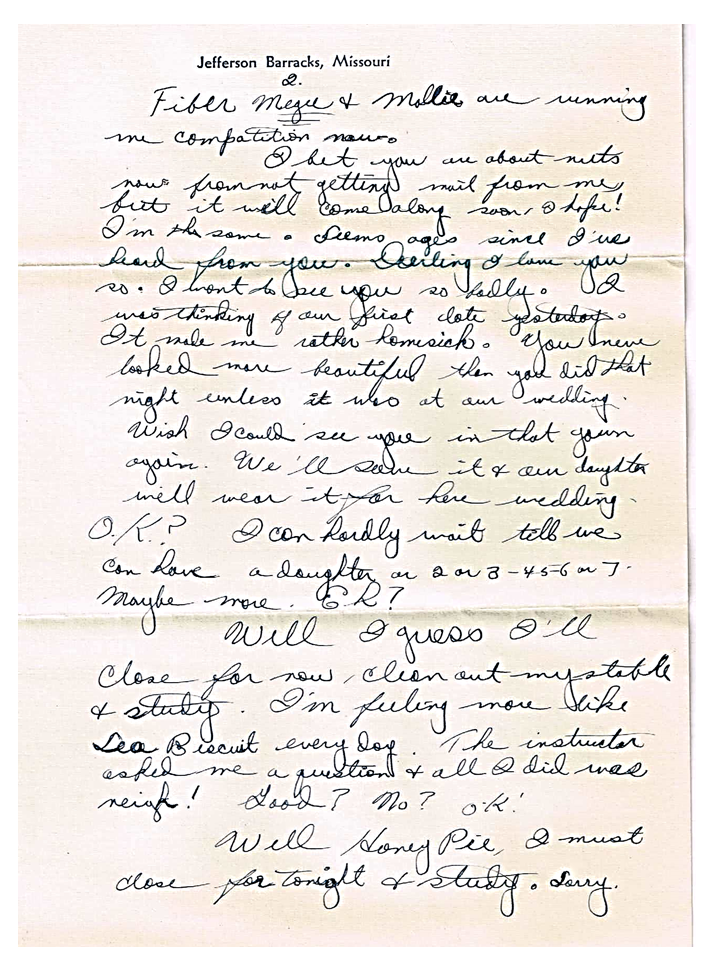 Jefferson Barracks, Missouri
2.
Fiber Megee & Mollie are running
me compatition now.
I bet you are about nuts
now from not getting mail from me,
but it will come along soon, I hope!
I'm the same. Seems ages since I've
heard from you. Darling I love you
so. I want to see you so badly. I
was thinking of our first date yesterday.
It made me rather homesick. You never
looked more beautiful then you did that
night unless it was at our wedding.
Wish I could see you in that gown
again. We'll save it & our daughter
will wear it for here wedding.
O.K.? I can hardly wait tell we
can have a daughter or 2 or 3-4-5-6 or 7.
Maybe more. Eh?
Well I guess I'll
close for now, clean out my stable
& study. I'm feeling more like
Sea Biscuit every day. The instructor
asked me a question & all I did was
neigh! Good? No? O.K!
Well Honey Pie, I must
close for tonight & study. Sorry.